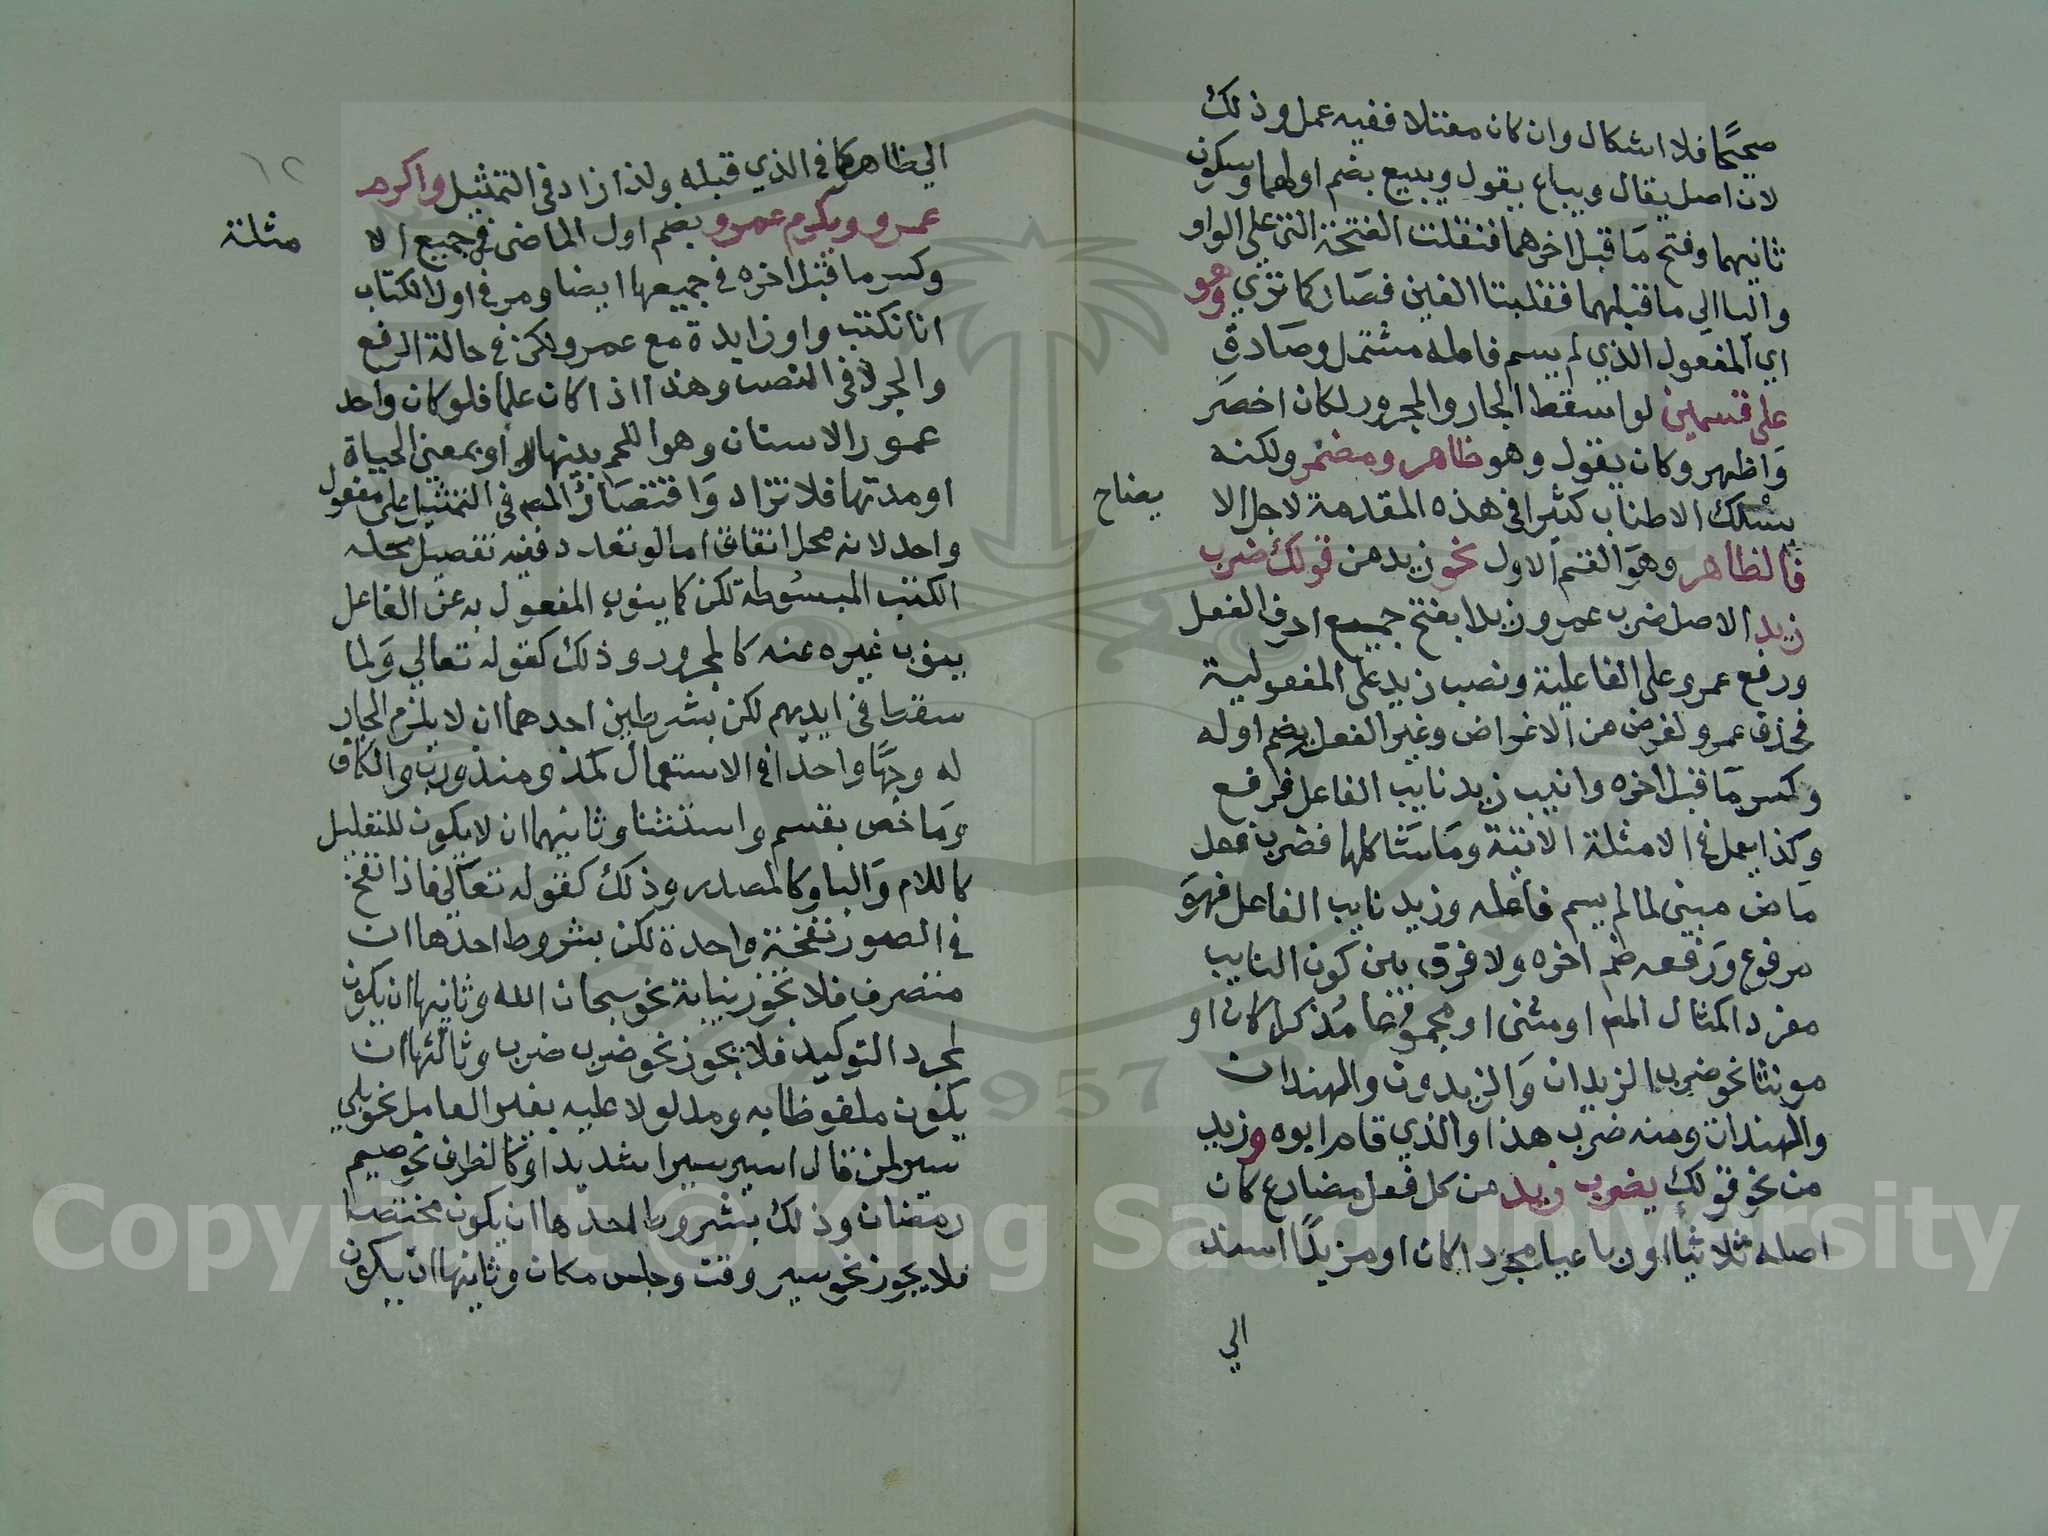 صحيحًا فلا اشكال وان كان معتلا ففيه عمل وذلك
لان اصل يقال ويباع يقول ويبيع بضم اولهما وسكون
ثانيهما وفتح ما قبل اخرهما فنقلت الفتحة التي علي الواو
والياالي ما قبلهما فقلبتا الفين فصار كما تري وهو
اي المفعول الذي لم يسم فاعله مشتمل وصادق
علي قسمين لو اسقط الجار والمجرور لكان اخصر
واظهر وكان يقول وهو ظاهر ومضمر ولكنه
يسلك الاطناب كثيرا في هذه المقدمة لاجل الا
يضاح
فالظاهر وهو القسم الاول نحو زيد من قولك ضرب
زيد الاصل ضرب عمرو زيدا بفتح جميع احرف الفعل
ورفع عمرو علي الفاعلية ونصب زيد علي المفعولية
فحذف عمرو لغرض من الاغراض وغير الفعل بضم اوله
وكسر ما قبل اخره وانيب زيد نايب الفاعل فرفع
وكذا يعمل في الامثلة الاتية وما شاكلها فضرب فعل
ماض مبني لما لم يسم فاعله وزيد نايب الفاعل فهو
مرفوع ورفعه ضم اخره ولا فرق بين كون النايب
مفردا كمثال المص او مثني او مجموعا مذكرا كان او
مونثا نحو ضرب الزيدان والزيدون والهندان
والهندات ومنه ضرب هذا والذي قام ابوه وزيد
من نحو قولك يضرب زيد من كل فعل مضارع كان
اصله ثلاثيا او رباعيا مجردا كان او مزيدًا اسند
الي
١٢
الي ظاهر كما في الذي قبله ولذا زاد في التمثيل واكرم
عمرو ويكرم عمرو بضم اول الماضي في جميع الا
مثلة
وكسر ما قبل اخره في جميعها ايضا ومر في اول الكتاب
انا نكتب واو زايدة مع عمرو لكن في حالة الرفع
والجر لا في النصب وهذا اذا كان علما فلو كان واحد
عمور الاسنان وهو اللحم بينها او بمعني الحياة
او مدتها فلا تزاد واقتصار المص في التمثيل علي مفعول
واحد لانه محل اتفاق اما لو تعدد ففيه تفصيل محله
الكتب المبسوطة لكن كما ينوب المفعول به عن الفاعل
ينوب غيره عنه كالمجرور وذلك كقوله تعالي ولما
سقط في ايديهم لكن بشرطين احدهما ان لا يلزم الجار
له وجهًا واحدا في الاستعمال كمذ ومنذ ورب والكاف
وما خص بقسم واستثنا وثانيهما ان لا يكون للتعليل
كاللام والبا وكالمصدر وذلك كقوله تعالي فاذا نفخ
في الصور نفخة واحدة لكن بشروط احدها ان
متصرف فلا تجوز نيابة نحو سبحان الله وثانيها ان يكون
لمجرد التوكيد فلا يجوز نحو ضرب ضرب وثالثها ان
يكون ملفوظا به ومدلولا عليه بغير العامل نحو بلي
سير لمن قال اسير سيرا شديدا وكالظرف نحو صيم
رمضان وذلك بشروط احدها ان يكون مختصا
فلا يجوز نحو سير وقت وجلس مكان وثانيها ان يكون
1957
Copyright © King Saud University